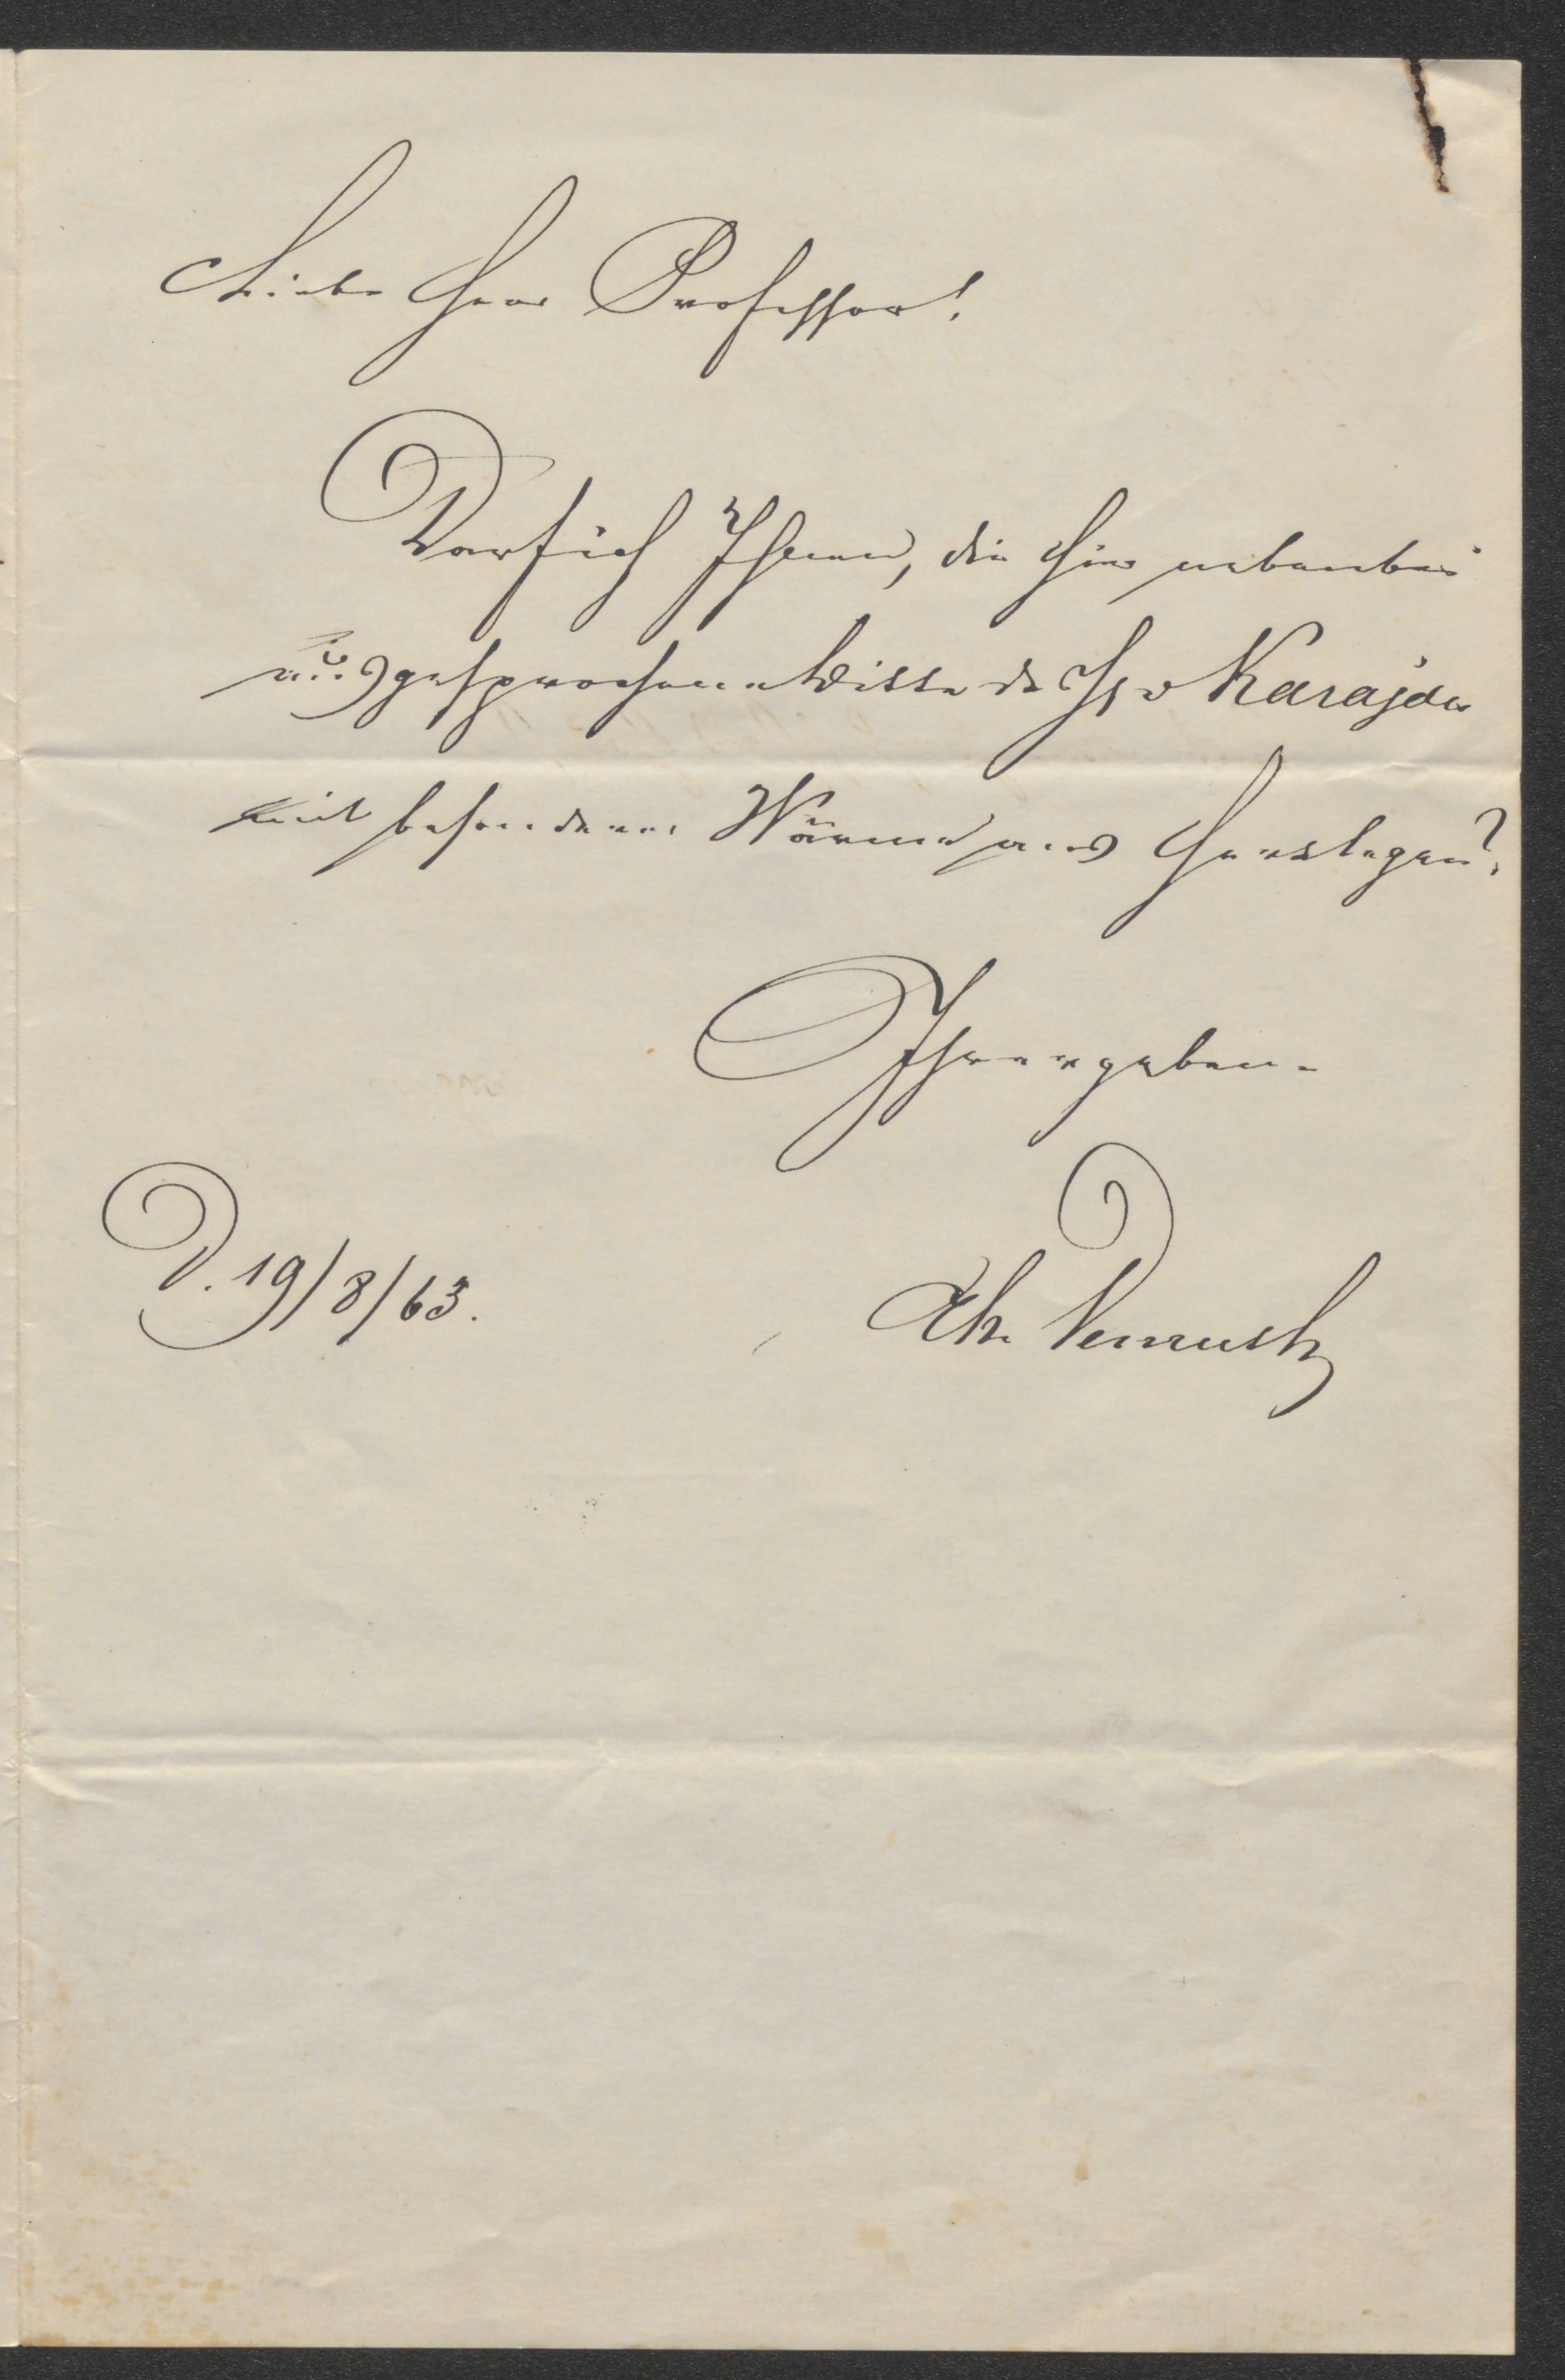 Lieber Herr Professor!
Darf ich Ihnen, die hier nebenbei
ausgesprochene Bitte des H v Karajda
mit besonderer Wärme ans Herz legen?
Ihr ergebener
D. 19/8/63.